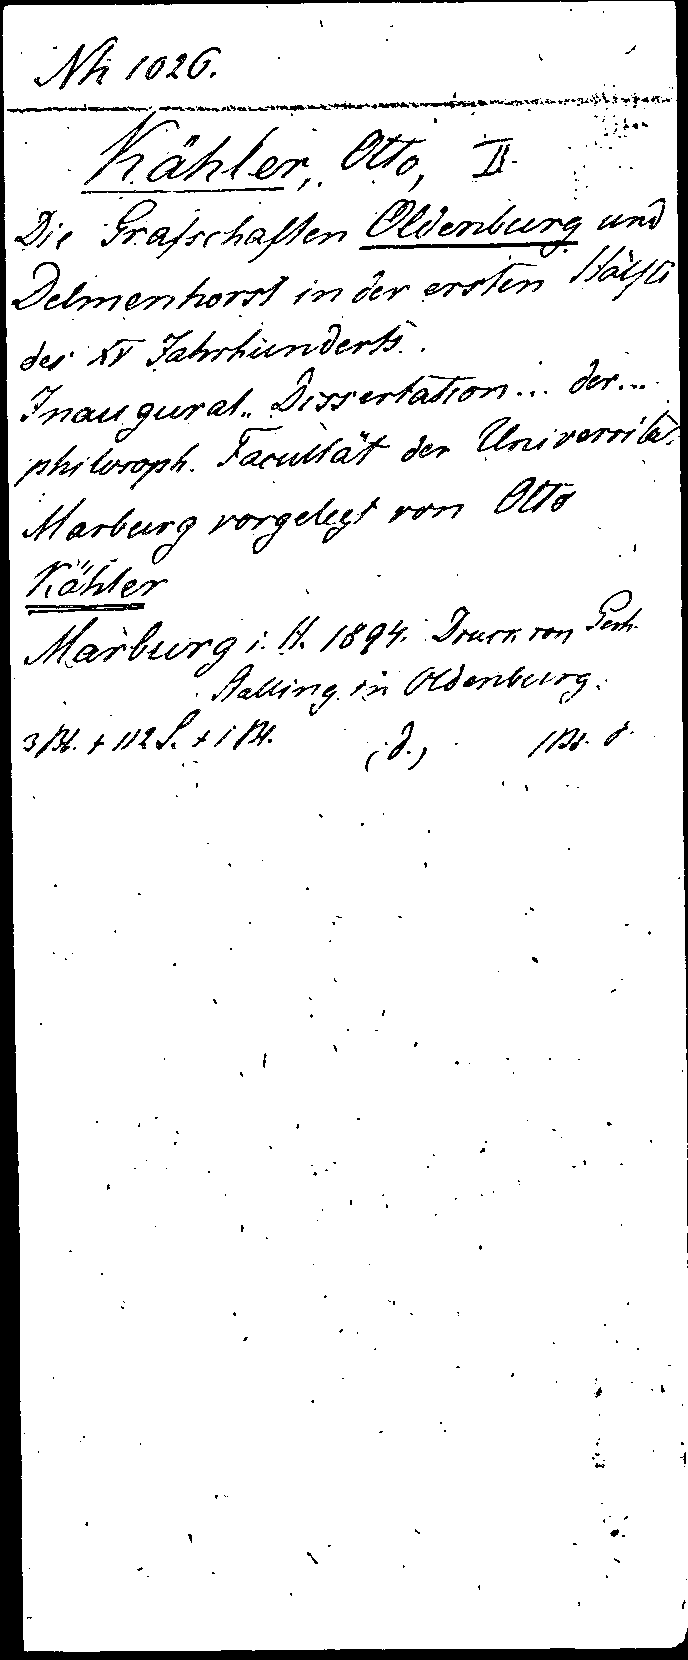 Nh 1026.
Kähler, Otto, II.
Die Grafschaften Oldenburg und
Delmenhorst in der ersten Hälfte
des XV Jahrhunderts.
Inaugural-Dissertation... der...
philosoph. Facultät der Universität
Marburg vorgelegt von Otto
Kähler
Marburg i. H. 1894. Druck von Gerh.
Stalling in Oldenburg.
3 Bl. + 112 S. + 1 Bl. (8.)